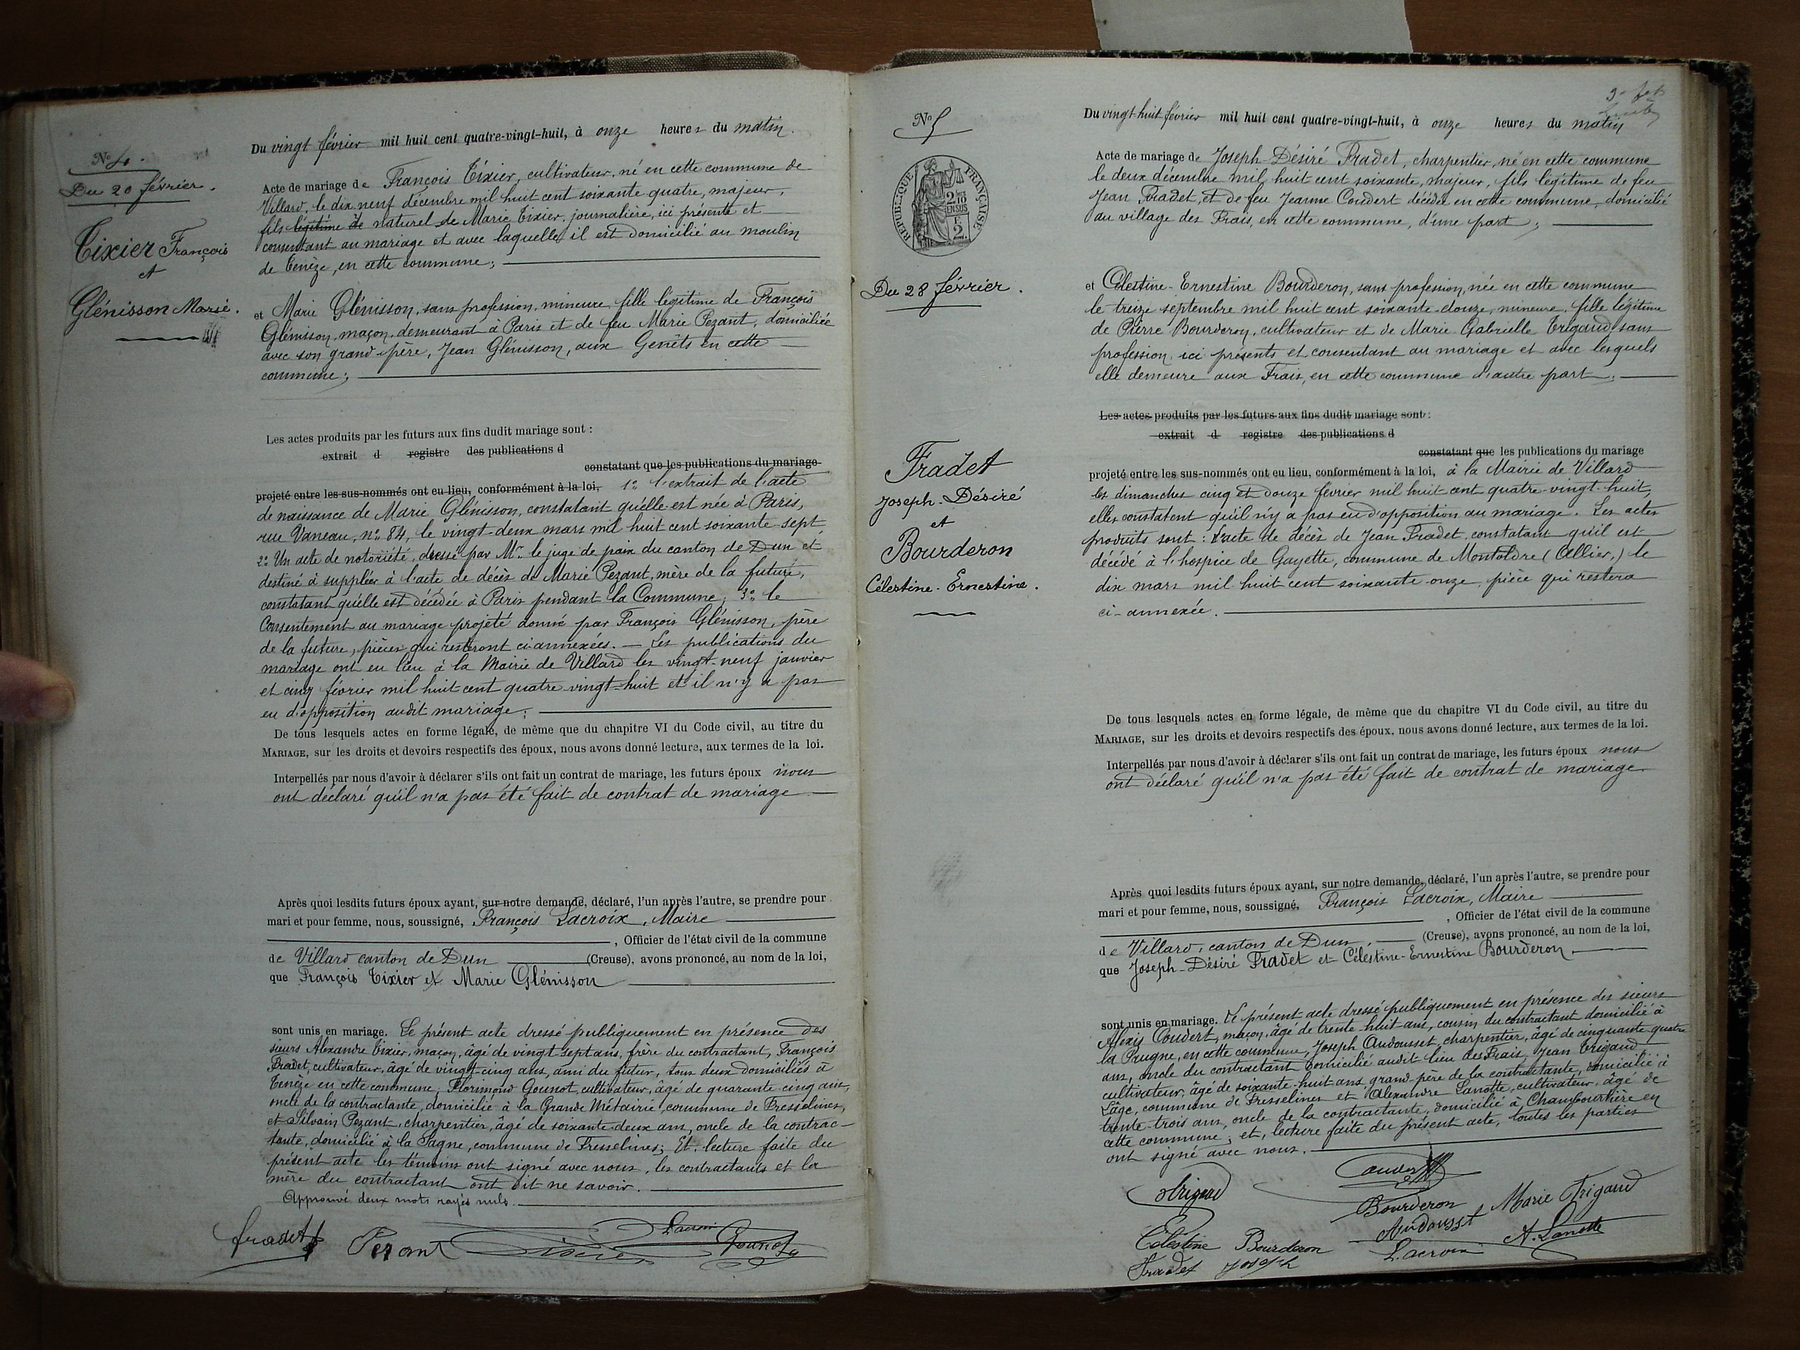 N° 4.
Du 20 février.
Tixier François
et
Glénisson Marie.
Du vingt février mil huit cent quatre-vingt-huit, à onze heures du matin.
Acte de mariage de François Tixier, cultivateur, né en cette commune de
Villard, le dix neuf décembre mil huit cent soixante quatre, majeur,
fils légitime de naturel de Marie Tixier, journalière, ici présente et
consentant au mariage et avec laquelle il est domicilié au moulin
de Tenèze, en cette commune;
et Marie Glénisson, sans profession, mineure fille légitime de François
Glénisson, maçon, demeurant à Paris et de feu Marie Pezant, domiciliée
avec son grand-père, Jean Glénisson, aux Genêts en cette
commune;
Les actes produits par les futurs aux fins dudit mariage sont :
extrait d registre des publications d
constatant que les publications du mariage
projeté entre les sus-nommés ont eu lieu, conformément à la loi, 1° l'extrait de l'acte
de naissance de Marie Glénisson, constatant qu'elle est née à Paris,
rue Vaneau, n° 84, le vingt-deux mars mil huit cent soixante sept
2° Un acte de notoriété, dressé par Mr le juge de paix du canton de Dun et
destiné à suppléer à l'acte de décès de Marie Pezant, mère de la future,
constatant qu'elle est décédée à Paris pendant la Commune; 3° le
Consentement au mariage projeté donné par François Glénisson, père
de la future, pièces qui resteront ci-annexées. — Les publications du
mariage ont eu lieu à la Mairie de Villard les vingt-neuf janvier
et cinq février mil huit cent quatre-vingt-huit et il n'y a pas
eu d'opposition audit mariage;
De tous lesquels actes en forme légale, de même que du chapitre VI du Code civil, au titre du
MARIAGE, sur les droits et devoirs respectifs des époux, nous avons donné lecture, aux termes de la loi.
Interpellés par nous d'avoir à déclarer s'ils ont fait un contrat de mariage, les futurs époux nous
ont déclaré qu'il n'a pas été fait de contrat de mariage
Après quoi lesdits futurs époux ayant, sur notre demande, déclaré, l'un après l'autre, se prendre pour
mari et pour femme, nous, soussigné, François Lacroix, Maire
, Officier de l'état civil de la commune
de Villard canton de Dun (Creuse), avons prononcé, au nom de la loi,
que François Tixier et Marie Glénisson
sont unis en mariage. Le présent acte dressé publiquement en présence des
sieurs Alexandre Tixier, maçon, âgé de vingt sept ans, frère du contractant, François
Fradet, cultivateur, âgé de vingt-cinq ans, ami du futur, tous deux domiciliés à
Tenèze en cette commune, Florimond Gounot, cultivateur, âgé de quarante cinq ans,
oncle de la contractante, domicilié à la Grande Métairie, commune de Fresselines,
et Silvain Pezant, charpentier, âgé de soixante deux ans, oncle de la contrac-
tante, domicilié à la Sagne, commune de Fresselines; Et lecture faite du
présent acte les témoins ont signé avec nous, les contractants et la
mère du contractant ont dit ne savoir.
Approuvé deux mots rayés nuls.
fradet Pezant Tixier Lacroix Gounot
N° 5
RÉPUBLIQUE FRANÇAISE
2/10 EN SUS
Du 28 février.
Fradet
Joseph-Désiré
et
Bourderon
Célestine-Ernestine.
Du vingt huit février mil huit cent quatre-vingt-huit, à onze heures du matin
Acte de mariage de Joseph-Désiré Fradet, charpentier, né en cette commune
le deux décembre mil huit cent soixante, majeur, fils légitime de feu
Jean Fradet, et de feu Jeanne Coudert décédée en cette commune, domicilié
au village des Frais, en cette commune, d'une part;
et Célestine-Ernestine Bourderon, sans profession, née en cette commune
le treize septembre mil huit cent soixante-douze, mineure, fille légitime
de Pierre Bourderon, cultivateur et de Marie Gabrielle Trigaud, sans
profession, ici présents et consentant au mariage et avec lesquels
elle demeure aux Frais, en cette commune d'autre part;
Les actes produits par les futurs aux fins dudit mariage sont :
extrait d registre des publications d
constatant que les publications du mariage
projeté entre les sus-nommés ont eu lieu, conformément à la loi, à la Mairie de Villard
les dimanches cinq et douze février mil huit cent quatre-vingt-huit,
elles constatent qu'il n'y a pas eu d'opposition au mariage. Les actes
produits sont : l'acte de décès de Jean Fradet constatant qu'il est
décédé à l'hospice de Gayette, commune de Montoldre (Allier,) le
dix mars mil huit cent soixante onze, pièce qui restera
ci-annexée.
De tous lesquels actes en forme légale, de même que du chapitre VI du Code civil, au titre du
MARIAGE, sur les droits et devoirs respectifs des époux, nous avons donné lecture, aux termes de la loi.
Interpellés par nous d'avoir à déclarer s'ils ont fait un contrat de mariage, les futurs époux nous
ont déclaré qu'il n'a pas été fait de contrat de mariage
Après quoi lesdits futurs époux ayant, sur notre demande, déclaré, l'un après l'autre, se prendre pour
mari et pour femme, nous, soussigné, François Lacroix, Maire
, Officier de l'état civil de la commune
de Villard, canton de Dun, (Creuse), avons prononcé, au nom de la loi,
que Joseph-Désiré Fradet et Célestine-Ernestine Bourderon
sont unis en mariage. Le présent acte dressé publiquement en présence des sieurs
Alexis Coudert, maçon, âgé de trente huit ans, cousin du contractant domicilié à
la Prugne, en cette commune, Joseph Audousset, charpentier, âgé de cinquante quatre
ans, oncle du contractant domicilié audit lieu des Frais, Jean Trigaud
cultivateur, âgé de soixante-huit ans grand père de la contractante, domicilié à
Lâge, commune de Fresselines et Alexandre Lanotte, cultivateur, âgé de
trente-trois ans, oncle de la contractante, domicilié à Chambourtière en
cette commune; et, lecture faite du présent acte, toutes les parties
ont signé avec nous.
Coudert
Trigaud Bourderon Marie Trigaud
Audousset A. Lanotte
Célestine Bourderon Lacroix
Fradet Joseph